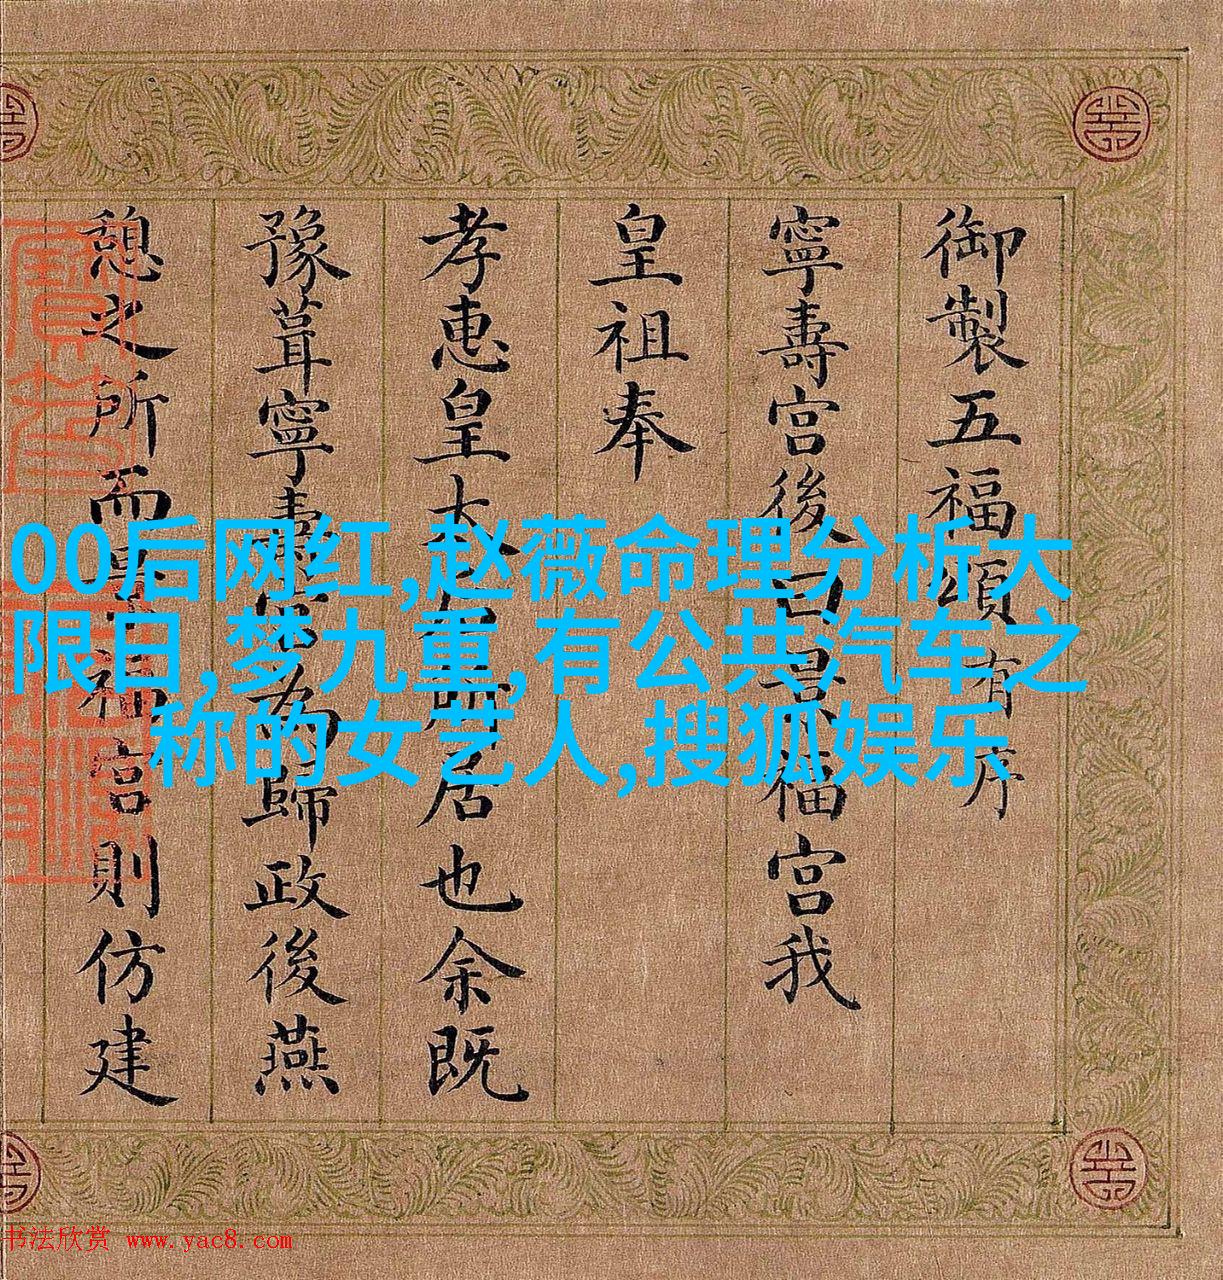 御製五福頌有序
寧壽宮後曰景福宮我
皇祖奉
孝惠皇太后所居也余既
豫葺寧壽宮為歸政後燕
憩之所而景福宮則仿建
00后网红,赵薇命理分析大
限日,梦九重,有公共汽车之
称的女艺人,搜狐娱乐
书法欣赏 www.yac8.com